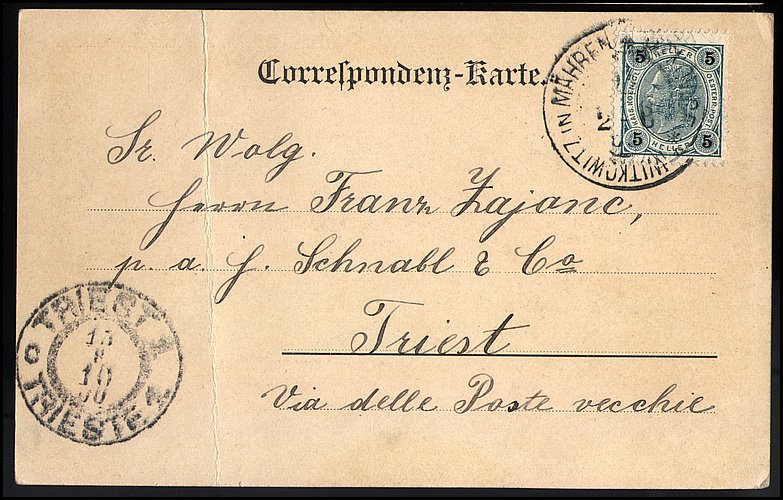 Correspondenz-Karte.
WITKOWITZ IN MÄHREN
5 HELLER 5
KAIS. KOENIGL. OESTERR. POST
5 HELLER 5
Sr. Wolg.
Herrn Franz Zajanc,
p. a. H. Schnabl & Co
Triest
Via delle Poste vecchie
TRIEST 1
15
10
00
TRIESTE 1